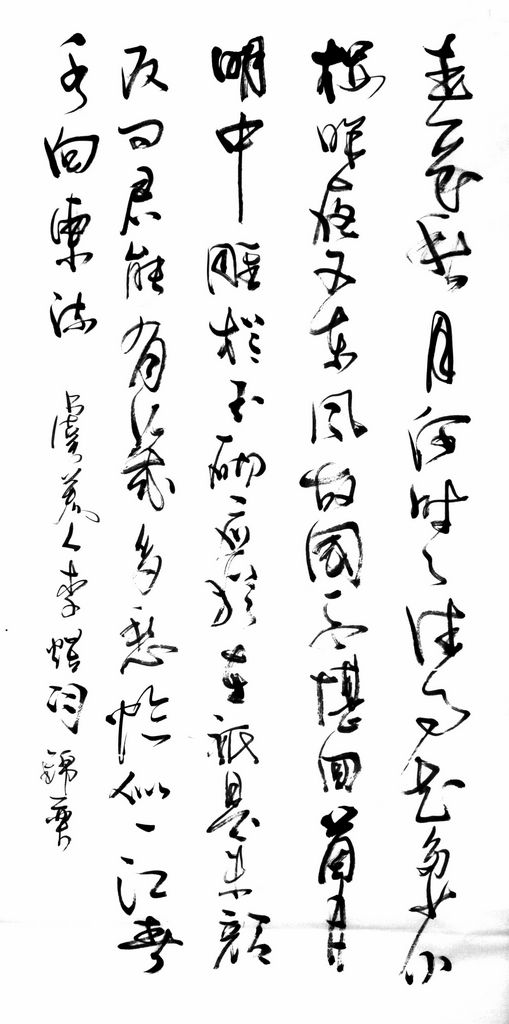 春花秋月何時了往事知多少小
樓昨夜又東風故國不堪回首月
明中雕栏玉砌應猶在祇是朱顏
改問君能有幾多愁恰似一江春
水向東流 虞美人李煜詞 錦